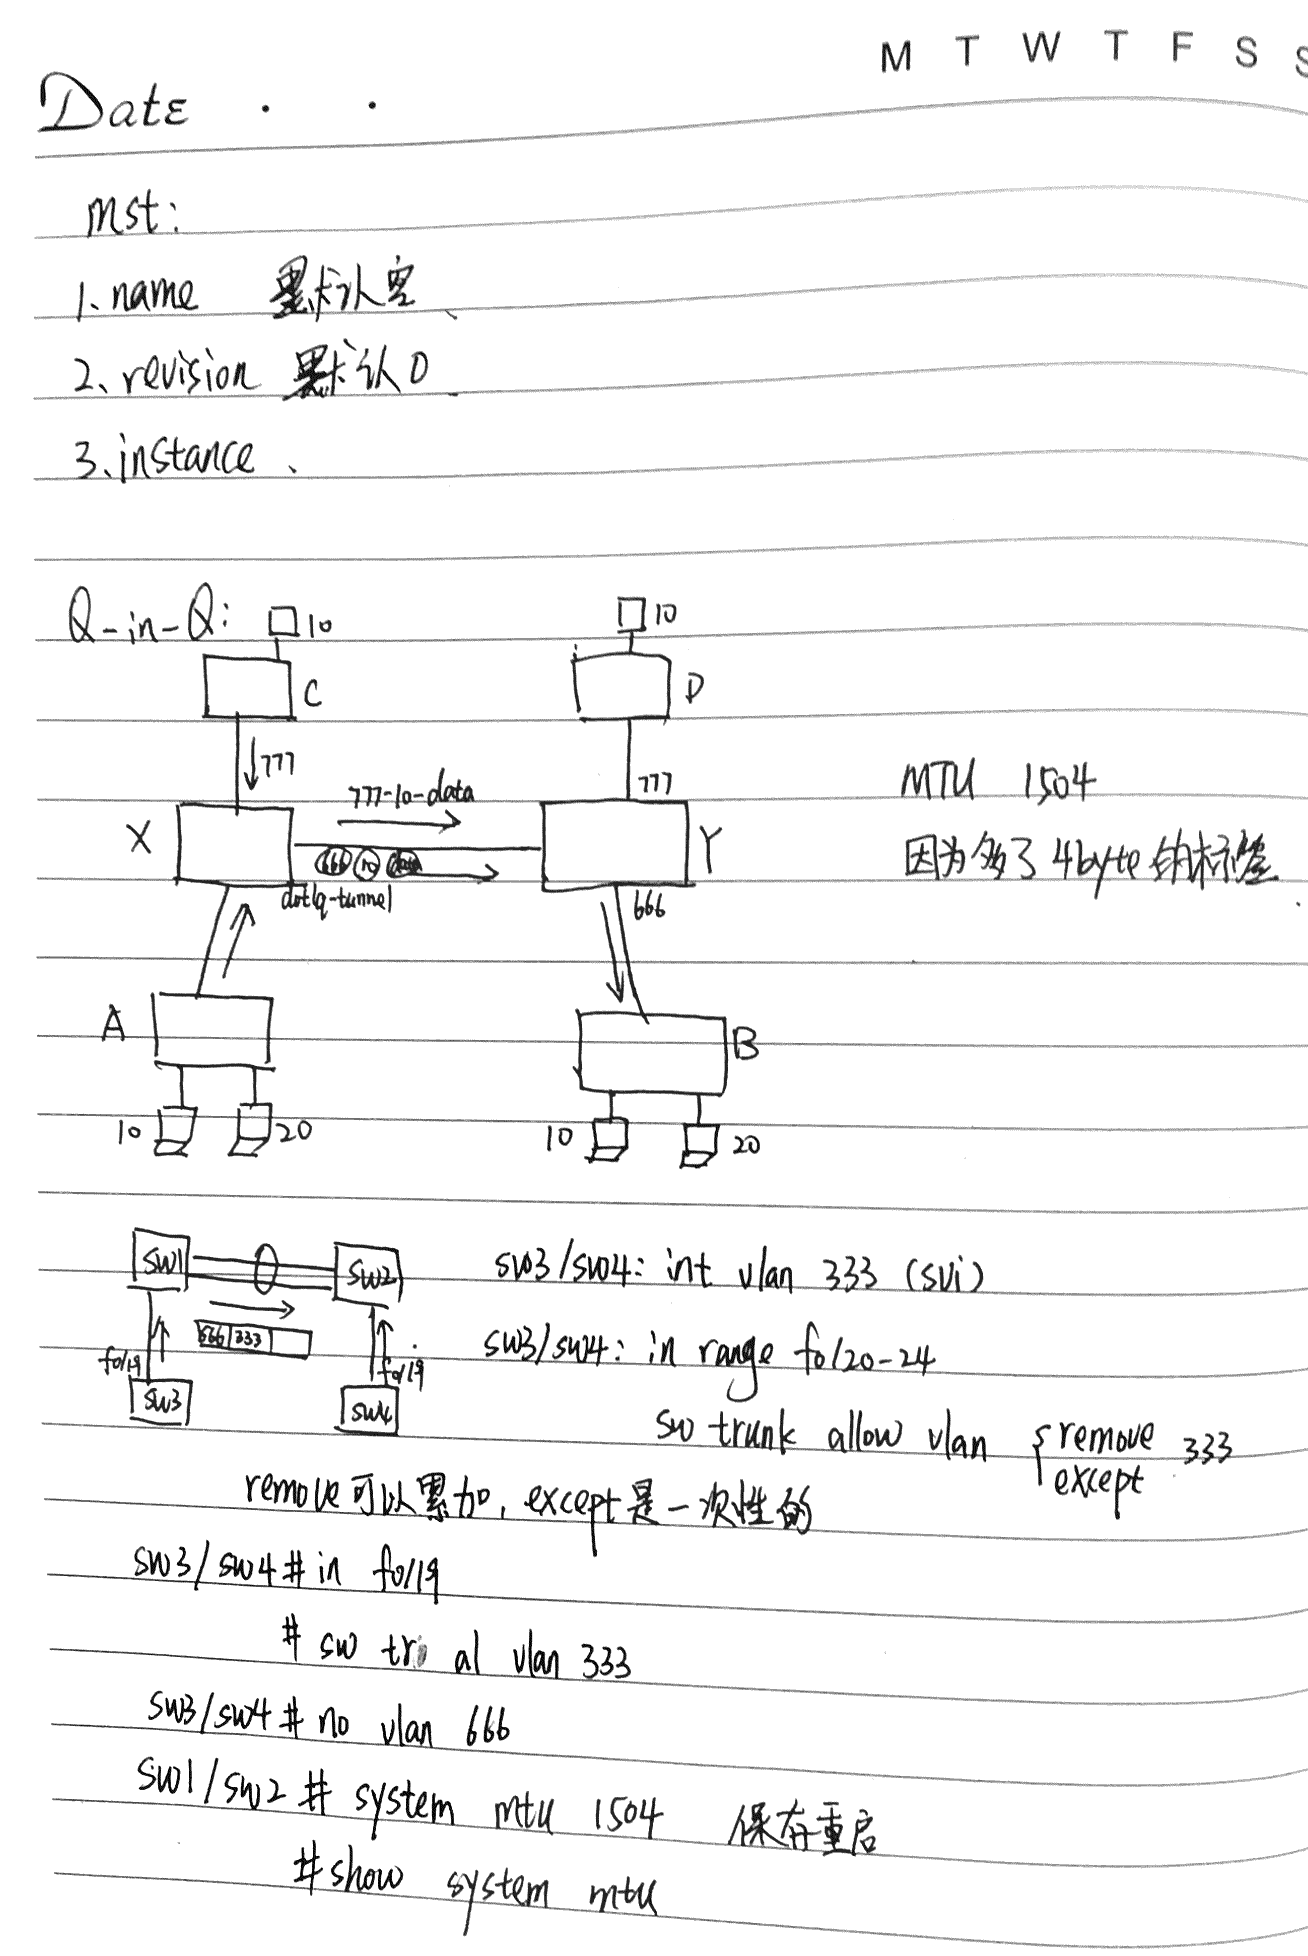 M T W T F S S
Date . .
mst:
1.name 默认空
2.revision 默认0
3.instance.
Q-in-Q:
10
10
C
D
777
777
777-10-data
MTU 1504
X
Y
666 10 data
因为多了4byte的标签
dot1q-tunnel
666
A
B
10
20
10
20
SW1
SW2
sw3/sw4: int vlan 333 (svi)
666 333
fo/19
fo/19
sw3/sw4: in range fo/20-24
SW3
SW4
sw trunk allow vlan {remove 333
except
remove可以累加, except是一次性的
sw3/sw4# in fo/19
# sw tr al vlan 333
sw3/sw4# no vlan 666
sw1/sw2 # system mtu 1504 保存重启
#show system mtu